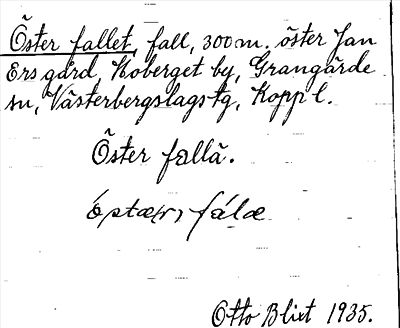 Öster fallet, fall, 300 m. öster Jan
Ers gård, Noberget by, Grangärde
sn, Västerbergslags tg, Kopp l.
Öster fallä.
óstæ(r) fálæ
Otto Blixt 1935.